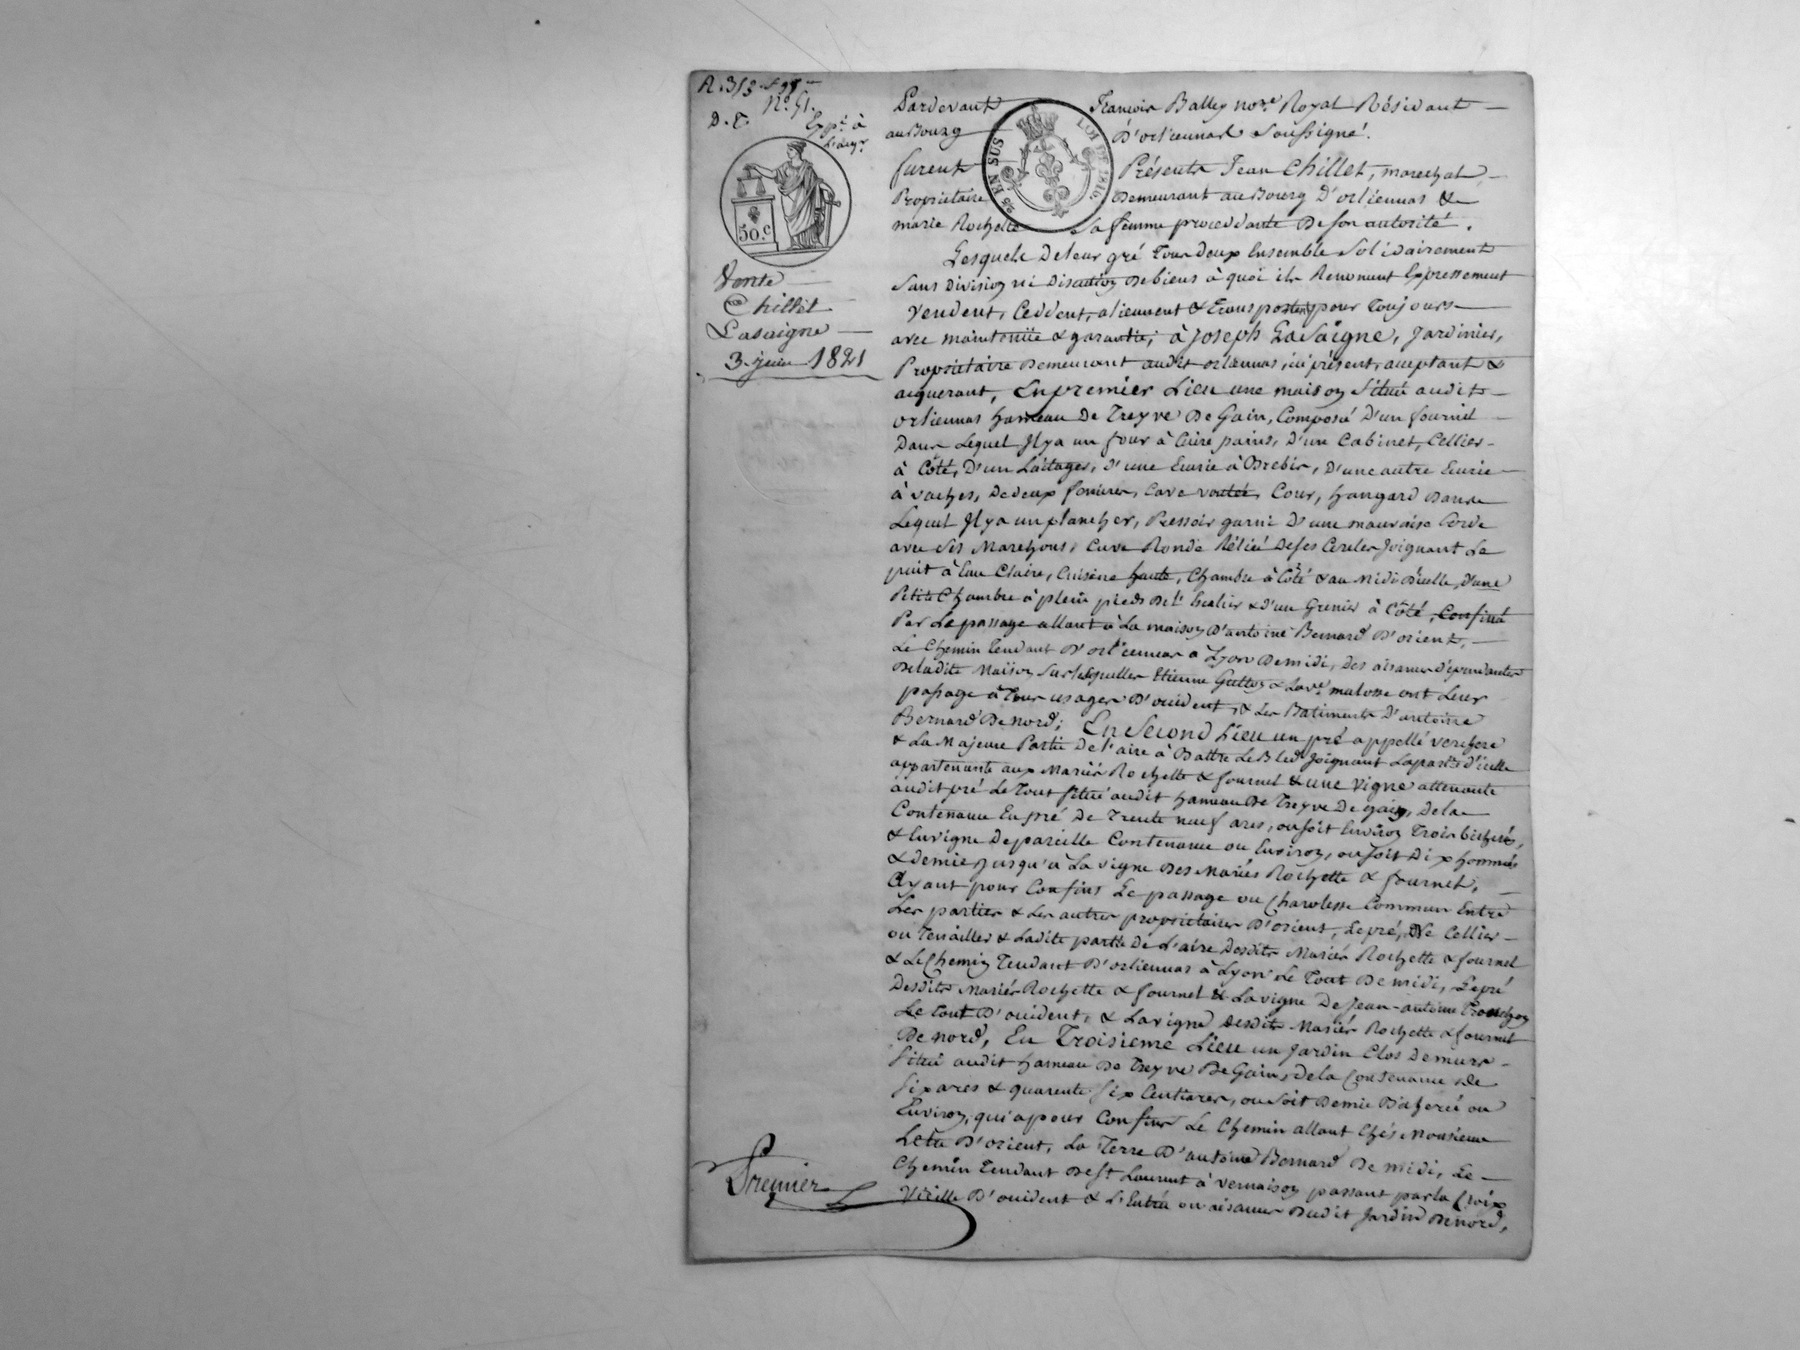 R. 313. f. 98
N.° 51.
D. T. Exp.é à
l'aqr
50.c
25 EN SUS LOI DE 1816
Vente
Chillet
Lasaigne
3 juin 1821
Pardevant François Balley no.re Royal Résidant
au Bourg D'orliennas Soussigné.
furent Présents Jean Chillet, marechal,
Propriétaire Demeurant au Bourg D'orliennas &
marie Rochette Sa femme proceddante De son autorité.
Lesquels De leur gré Tous Deux Ensemble Solidairement
Sans Division ni Discution De biens à quoi ils Renonunt Expressement
Vendent, Ceddent, alienent & Transportent pour Toujours
avec maintenüe & garantie, à Joseph LaSaigne, Jardinier,
Propriétaire Demeurant audit orliennas, ici présent, acceptant &
aiquerant, En premier Lieu une maison Situé audit
orliennas hameau De Treyve De Gain, Composé D'un fournil
Dans Lequel Il y a un four à Cuire pains, D'un Cabinet, Cellier
à Côté, D'un Laitages, d'une Ecurie à Brebis, D'une autre Ecurie
à vaches, De deux feniers, Cave voutée, Cour, hangard Dans
Lequel Il y a un plancher, Pressoir garni D'une mauvaise Corde
avec Ses Marchons, Cuve Ronde Réliée De ses Cercles Joignant Le
puit à Eau Claire, Cuisine haute, Chambre à Côté & au Midi D'icelle, D'une
Petite Chambre à plein pieds De l'Escalier & d'un Grenier à Côté, Confiné
Par Le passage allant à La maison D'antoine Bernard D'orient,
Le Chemin Tendant D'orliennas a Lyon De midi, Des aisances dépendantes
De ladite Maison Sur Lesquelles Etienne Gullon & La v.e malosse ont Leur
passage à Tous usages D'occident, & Les Batiments D'antoine
Bernard De nord; En Second Lieu un pré appellé verchere
& La Majeure Partie De l'aire à Battre Le Bled Joignant La partie d'icelle
appartenante aux Mariés Rochette & fournel & une Vigne attenante
audit pré Le Tout Situé audit hameau De Treyve De gain, De la
Contenance En pré De Trente neuf ares, ou soit Environ Trois bicherés,
& En vigne De pareille Contenance ou Environ, ou soit Dix hommés
& demie, Jusqu'à La vigne Des Mariés Rochette & fournel,
Ayant pour Confins Le passage ou Charolesse Commun Entre
Les parties & Les autres propriétaires D'orient, Le pré, Le Cellier
ou Terrailler & Ladite partie De L'aire Desdits Mariés Rochette & fournel
& Le Chemin Tendant D'orliennas à Lyon Le Tout De midi, Le pré
Desdits Mariés Rochette & fournel & La vigne De Jean-antoine Tronchon
Le Tout D'occident, & La vigne Desdits Mariés Rochette & fournel
De nord, En Troisieme Lieu un Jardin Clos De murs
Situé audit hameau De Treyve De Gain, De la Contenance De
Six ares & quarente Six Centiares, ou Soit Demie Bicherée ou
Environ, qui a pour Confins Le Chemin allant Chés Monsieur
D'orient, La Terre D'antoine Bernard De midi, Le
Chemin Tendant De St Laurent à vernaison passant par la Croix
Vieille D'occident & L'Entrée ou aisances Dudit Jardin De nord,
Premier